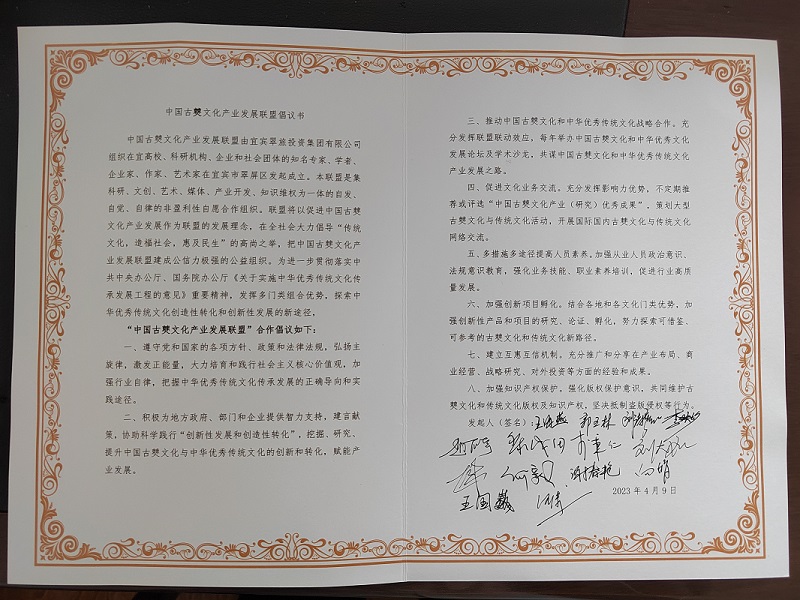 中国古僰文化产业发展联盟倡议书
中国古僰文化产业发展联盟由宜宾翠旅投资集团有限公司
组织在宜高校、科研机构、企业和社会团体的知名专家、学者、
企业家、作家、艺术家在宜宾市翠屏区发起成立。本联盟是集
科研、文创、艺术、媒体、产业开发、知识维权为一体的自发、
自觉、自律的非盈利性自愿合作组织。联盟将以促进中国古僰
文化产业发展作为联盟的发展理念，在全社会大力倡导“传统
文化，造福社会，惠及民生”的高尚之举，把中国古僰文化产
业发展联盟建成公信力极强的公益组织。为进一步贯彻落实中
共中央办公厅、国务院办公厅《关于实施中华优秀传统文化传
承发展工程的意见》重要精神，发挥多门类组合优势，探索中
华优秀传统文化创造性转化和创新性发展的新途径。
“中国古僰文化产业发展联盟”合作倡议如下：
一、遵守党和国家的各项方针、政策和法律法规，弘扬主
旋律，激发正能量，大力培育和践行社会主义核心价值观，加
强行业自律，把握中华优秀传统文化传承发展的正确导向和实
践途径。
二、积极为地方政府、部门和企业提供智力支持，建言献
策，协助科学践行“创新性发展和创造性转化”，挖掘、研究、
提升中国古僰文化与中华优秀传统文化的创新和转化，赋能产
业发展。
三、推动中国古僰文化和中华优秀传统文化战略合作。充
分发挥联盟联动效应，每年举办中国古僰文化和中华优秀文化
发展论坛及学术沙龙，共谋中国古僰文化和中华优秀传统文化
产业发展之路。
四、促进文化业务交流。充分发挥影响力优势，不定期推
荐或评选“中国古僰文化产业（研究）优秀成果”，策划大型
古僰文化与传统文化活动，开展国际国内古僰文化与传统文化
网络交流。
五、多措施多途径提高人员素养。加强从业人员政治意识、
法规意识教育，强化业务技能、职业素养培训，促进行业高质
量发展。
六、加强创新项目孵化。结合各地和各文化门类优势，加
强创新性产品和项目的研究、论证、孵化，努力探索可借鉴、
可参考的古僰文化和传统文化新路径。
七、建立互惠互信机制。充分推广和分享在产业布局、商
业经营、战略研究、对外投资等方面的经验和成果。
八、加强知识产权保护。强化版权保护意识，共同维护古
僰文化和传统文化版权及知识产权，坚决抵制盗版侵权等行为。
发起人（签名）：
王国巍
2023年4月9日